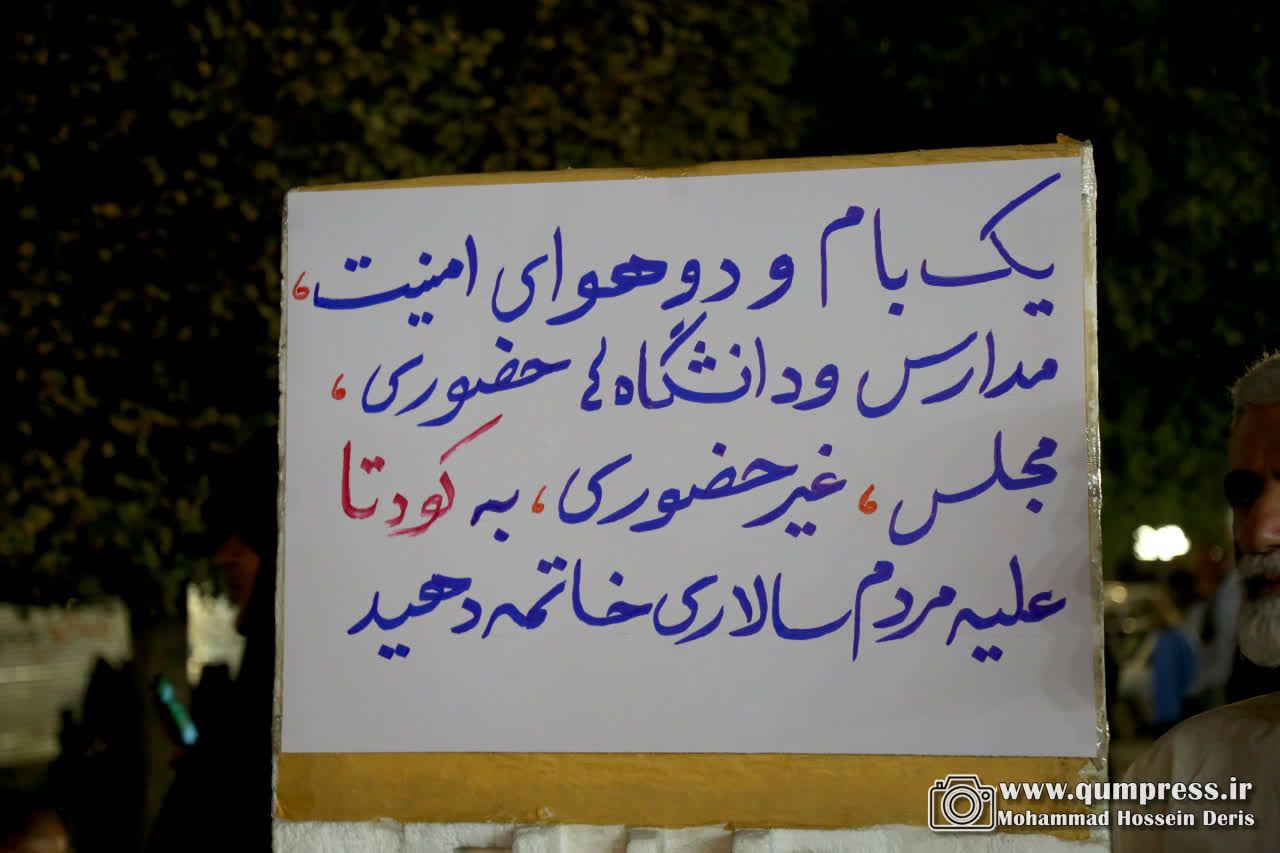 یک بام و دو هوای امنیت،
مدارس و دانشگاه ها حضوری،
مجلس، غیر حضوری، به کودتا
علیه مردم سالاری خاتمه دهید
www.qumpress.ir
Mohammad Hossein Deris